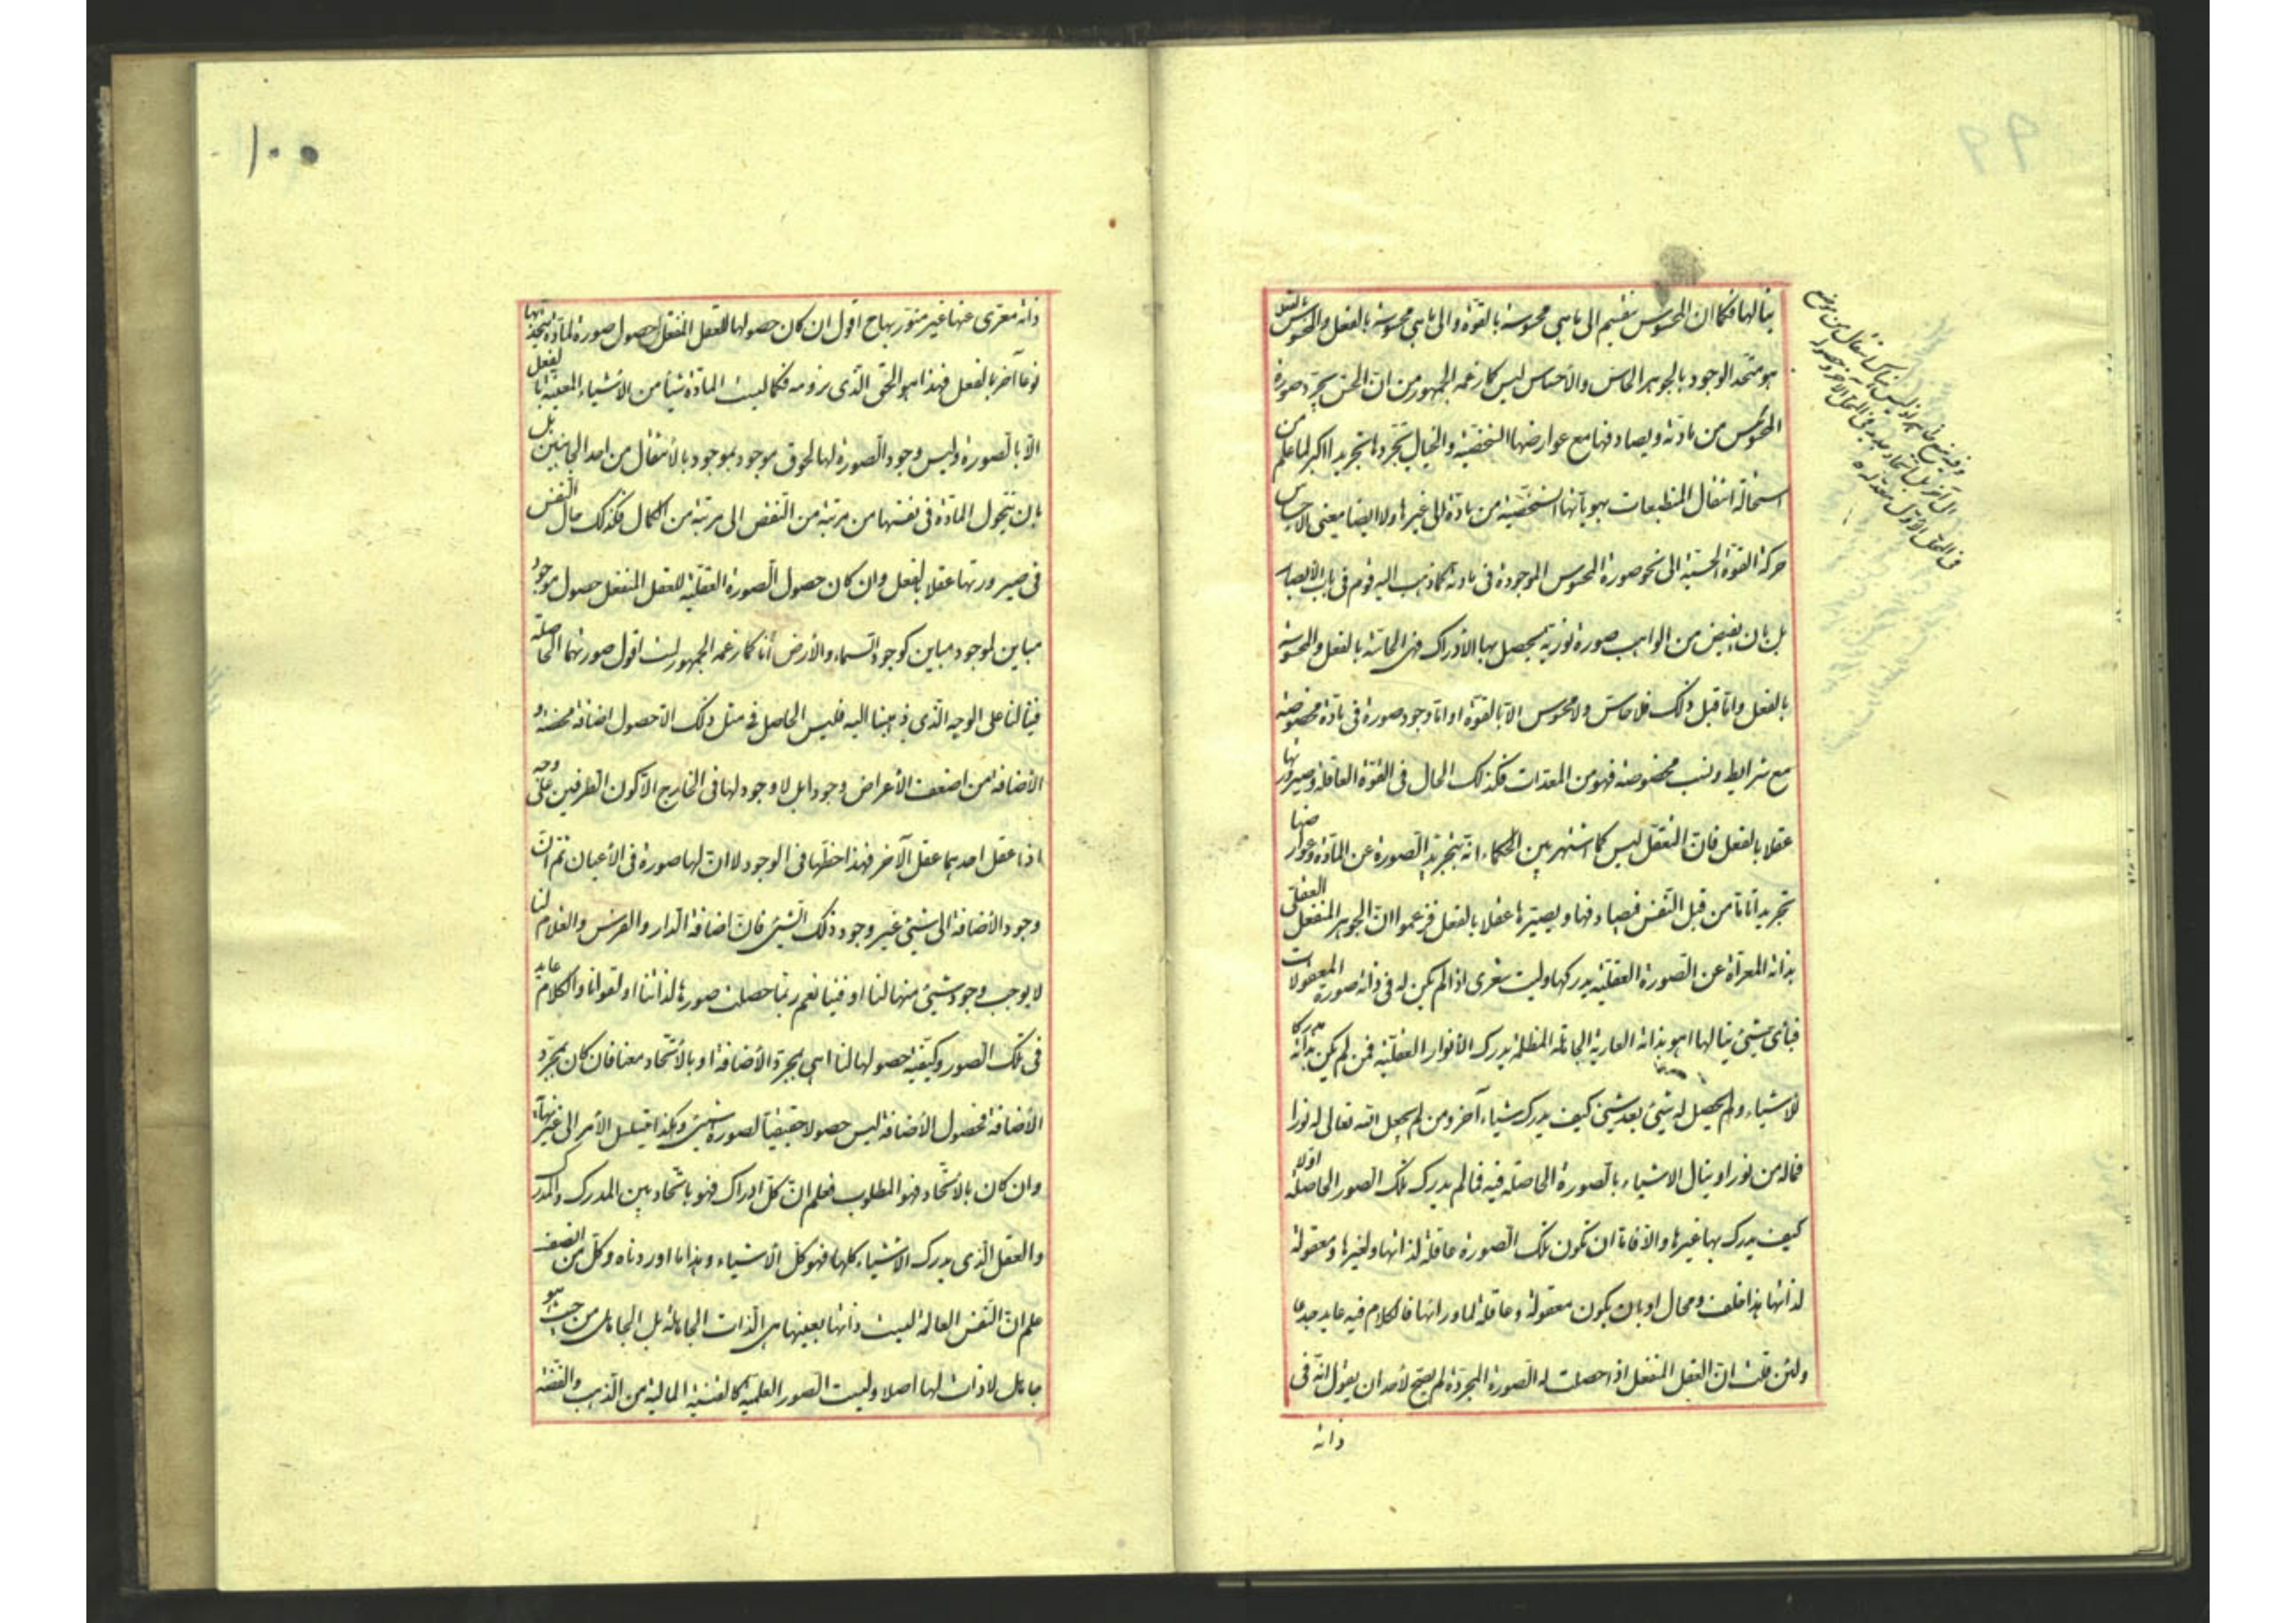 ينالها فكما ان المحسوس ينقسم الى ما هى محسوسة بالقوة والى ما هى محسوسة بالفعل والمحسوس بالفعل
هو متحد الوجود بالجوهر الحاس والأحساس ليس كما زعمه الجمهور من ان الحس يجرد صورة
المحسوس من مادته ويصادفها مع عوارضها الشخصية والخيال يجردها تجريدا اكثر لما علم من
استحالة انتقال المنطبعات بهوياتها الشخصية من مادة الى غيرها ولا ايضا معنى الاحساس
حركة القوة الحسية الى نحو صورة المحسوس الموجودة فى مادته كما ذهب اليه قوم فى باب الأبصار
بل بان يفيض من الواهب صورة نورية يحصل بها الادراك فهى الحاسة بالفعل والمحسوسة
بالفعل واما قبل ذلك فلا حاس ولا محسوس الا بالقوة او اما وجود صورة فى مادة مخصوصة
مع شرايط ونسب مخصوصة فهو من المعدات فكذلك الحال فى القوة العاقلة وصيرورتها
عقلا بالفعل فان التعقل ليس كما اشتهر بين الحكماء انه بتجريد الصورة عن المادة وعوارضها
تجريدا تاما من قبل النفس فيصادفها ويصيرها عقلا بالفعل فزعموا ان الجوهر المنفعل العقلى
بذاته المعراة عن الصورة العقلية يدركها وليت شعرى اذا لم يكن له فى ذاته صورة المعقولات
فبأى شيئ ينالها اهو بذاته العارية الجاهلة المظلمة يدرك الأنوار العقلية فمن لم يكن بذاته مدركا
للأشياء ولم يحصل له شيئ بعد شيئ كيف يدرك شياء آخر ومن لم يجعل الله تعالى له نورا
فماله من نور او ينال الاشياء بالصورة الحاصلة فيه فما لم يدرك تلك الصور الحاصلة اولا
كيف يدرك بها غيرها والا فاما ان تكون تلك الصورة عاقلة لذاتها ولغيرها ومعقولة
لذاتها هذا خلف ومحال او بان يكون معقولة وعاقلة لما وراتها فالكلام فيه عايد جدعا
ولئن قلت ان العقل المنفعل اذا حصلت له الصورة المجردة لم يصح لأحد ان يقول انه فى
ذاته
١٠٠
ذاته معرى عنها غير متنور بها ح اقول ان كان حصولها للعقل المنفعل لحصول صورة لمادة يتحد بها
نوعا آخر بالفعل فهذا هو الحق الذى نرومه فكما ليست المادة شيئا من الأشياء المعينة بالفعل
الا بالصورة وليس وجود الصورة لها لحوق موجود بموجود بالانتقال من احد الجانبين بل
بان يتحول المادة فى نفسها من مرتبة من النقص الى مرتبة من الكمال فكذلك حال النفس
فى صيرورتها عقلا بالفعل وان كان حصول الصورة العقلية للعقل المنفعل حصول موجود
مباين لموجود مباين كوجود السماء والأرض لنا كما زعمه الجمهور لست اقول صورتهما الحاصلة
فينا لنا على الوجه الذى ذهبنا اليه فليس الحاصل فى مثل ذلك الا حصول اضافة محضة و
الأضافة من اضعف الأعراض وجودا بل لا وجود لها فى الخارج الا كون الطرفين على وجه
اذا عقل احدهما عقل الآخر فهذا حظها فى الوجود لا ان لها صورة فى الأعيان ثم ان
وجود الأضافة الى شيئ غير وجود ذلك الشيئ فان اضافة الدار والفرس والغلام لنا
لا يوجب وجود شيئ منها لنا او فينا نعم ربما حصلت صورها لذاتنا او لقوانا والكلام عايد
فى تلك الصور وكيفية حصولها لنا اهى بمجرد الأضافة او بالأتحاد معنا فان كان بمجرد
الأضافة فحصول الأضافة ليس حصولا حقيقيا لصورة شيئ وهكذا يتسلسل الأمر الى غير نهاية
وان كان بالأتحاد فهو المطلوب فعلم ان كل ادراك فهو باتحاد بين المدرك والمدرك
والعقل الذى يدرك الاشياء كلها فهو كل الاشياء وهذا ما اوردناه وكل من انصف
علم ان النفس العالمة ليست ذاتها بعينها هى الذات الجاهلة بل الجاهل من حيث هو
جاهل لا ذات لها أصلا وليست الصور العلمية كالقنية المالية من الذهب والفضة